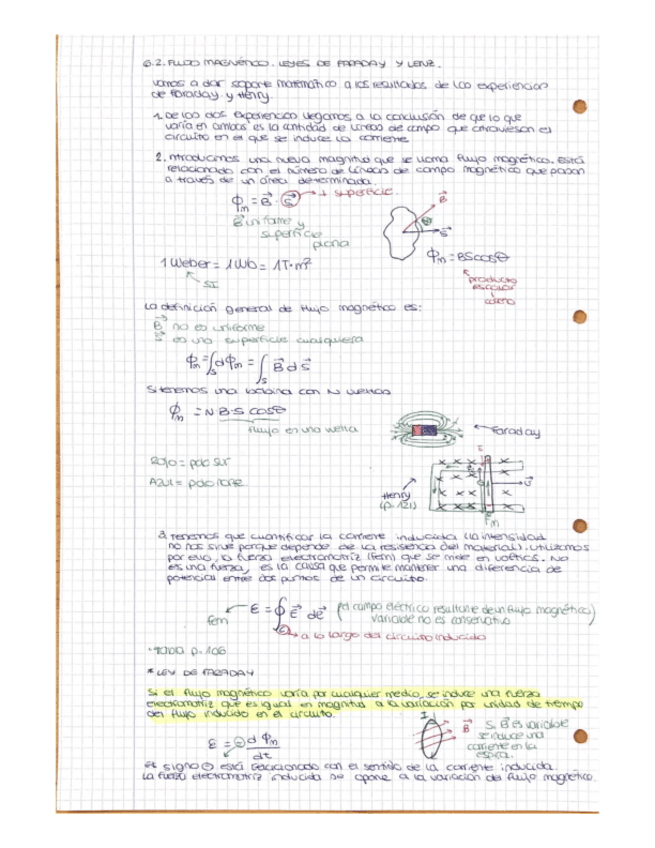 6.2. FLUJO MAGNÉTICO. LEYES DE FARADAY Y LENZ.
Vamos a dar soporte matemático a los resultados de las experiencias
de Faraday y Henry.
1. De las dos experiencias llegamos a la conclusión de que lo que
varía en ambas es la cantidad de líneas de campo que atraviesan el
circuito en el que se induce la corriente.
2. Introducimos una nueva magnitud que se llama flujo magnético. Está
relacionado con el número de líneas de campo magnético que pasan
a través de un área determinada.
Φm = B · S → superficie.
B uniforme y
superficie
plana
B
θ
S
Φm = BS cosθ
producto
escalar
1 Weber = 1Wb = 1T·m²
SI
La definición general de flujo magnético es:
B no es uniforme
S es una superficie cualquiera
Φm = ∫s dΦm = ∫s B dS
Si tenemos una bobina con N vueltas
Φm = N B·S cosθ
flujo en una vuelta
Faraday
Rojo = polo sur
Azul = polo norte
Henry
(p. 121)
Fm
3. Tenemos que cuantificar la corriente inducida (la intensidad
no nos sirve porque depende de la resistencia del material). Utilizamos
por ello, la fuerza electromotriz (fem) que se mide en voltios. No
es una fuerza, es la causa que permite mantener una diferencia de
potencial entre dos puntos de un circuito.
fem ← ε = ∮c E dl (el campo eléctrico resultante de un flujo magnético)
variable no es conservativo
→ a lo largo del circuito inducido
p. 106
* LEY DE FARADAY
Si el flujo magnético varía por cualquier medio, se induce una fuerza
electromotriz que es igual en magnitud a la variación por unidad de tiempo
del flujo inducido en el circuito.
ε = - dΦm / dt
I
B
Si B es variable
se induce una
corriente en la
espira.
El signo ⊖ está relacionado con el sentido de la corriente inducida.
La fuerza electromotriz inducida se opone a la variación del flujo magnético.